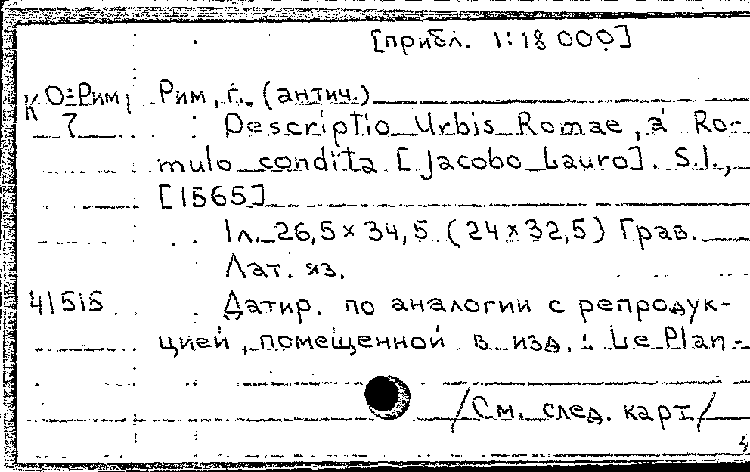 [прибл. 1:18 000]
К О=Рим Рим, г. (антич.)
7 Descriptio Urbis Romae, a Ro-
mulo condita [Jacobo Lauro]. S.l.,
[1565]
1л. 26,5×34,5 (24×32,5) Грав.
Лат. яз.
41515 Датир. по аналогии с репродук-
цией, помещенной в изд.: Le Plan-
/См. след. карт/